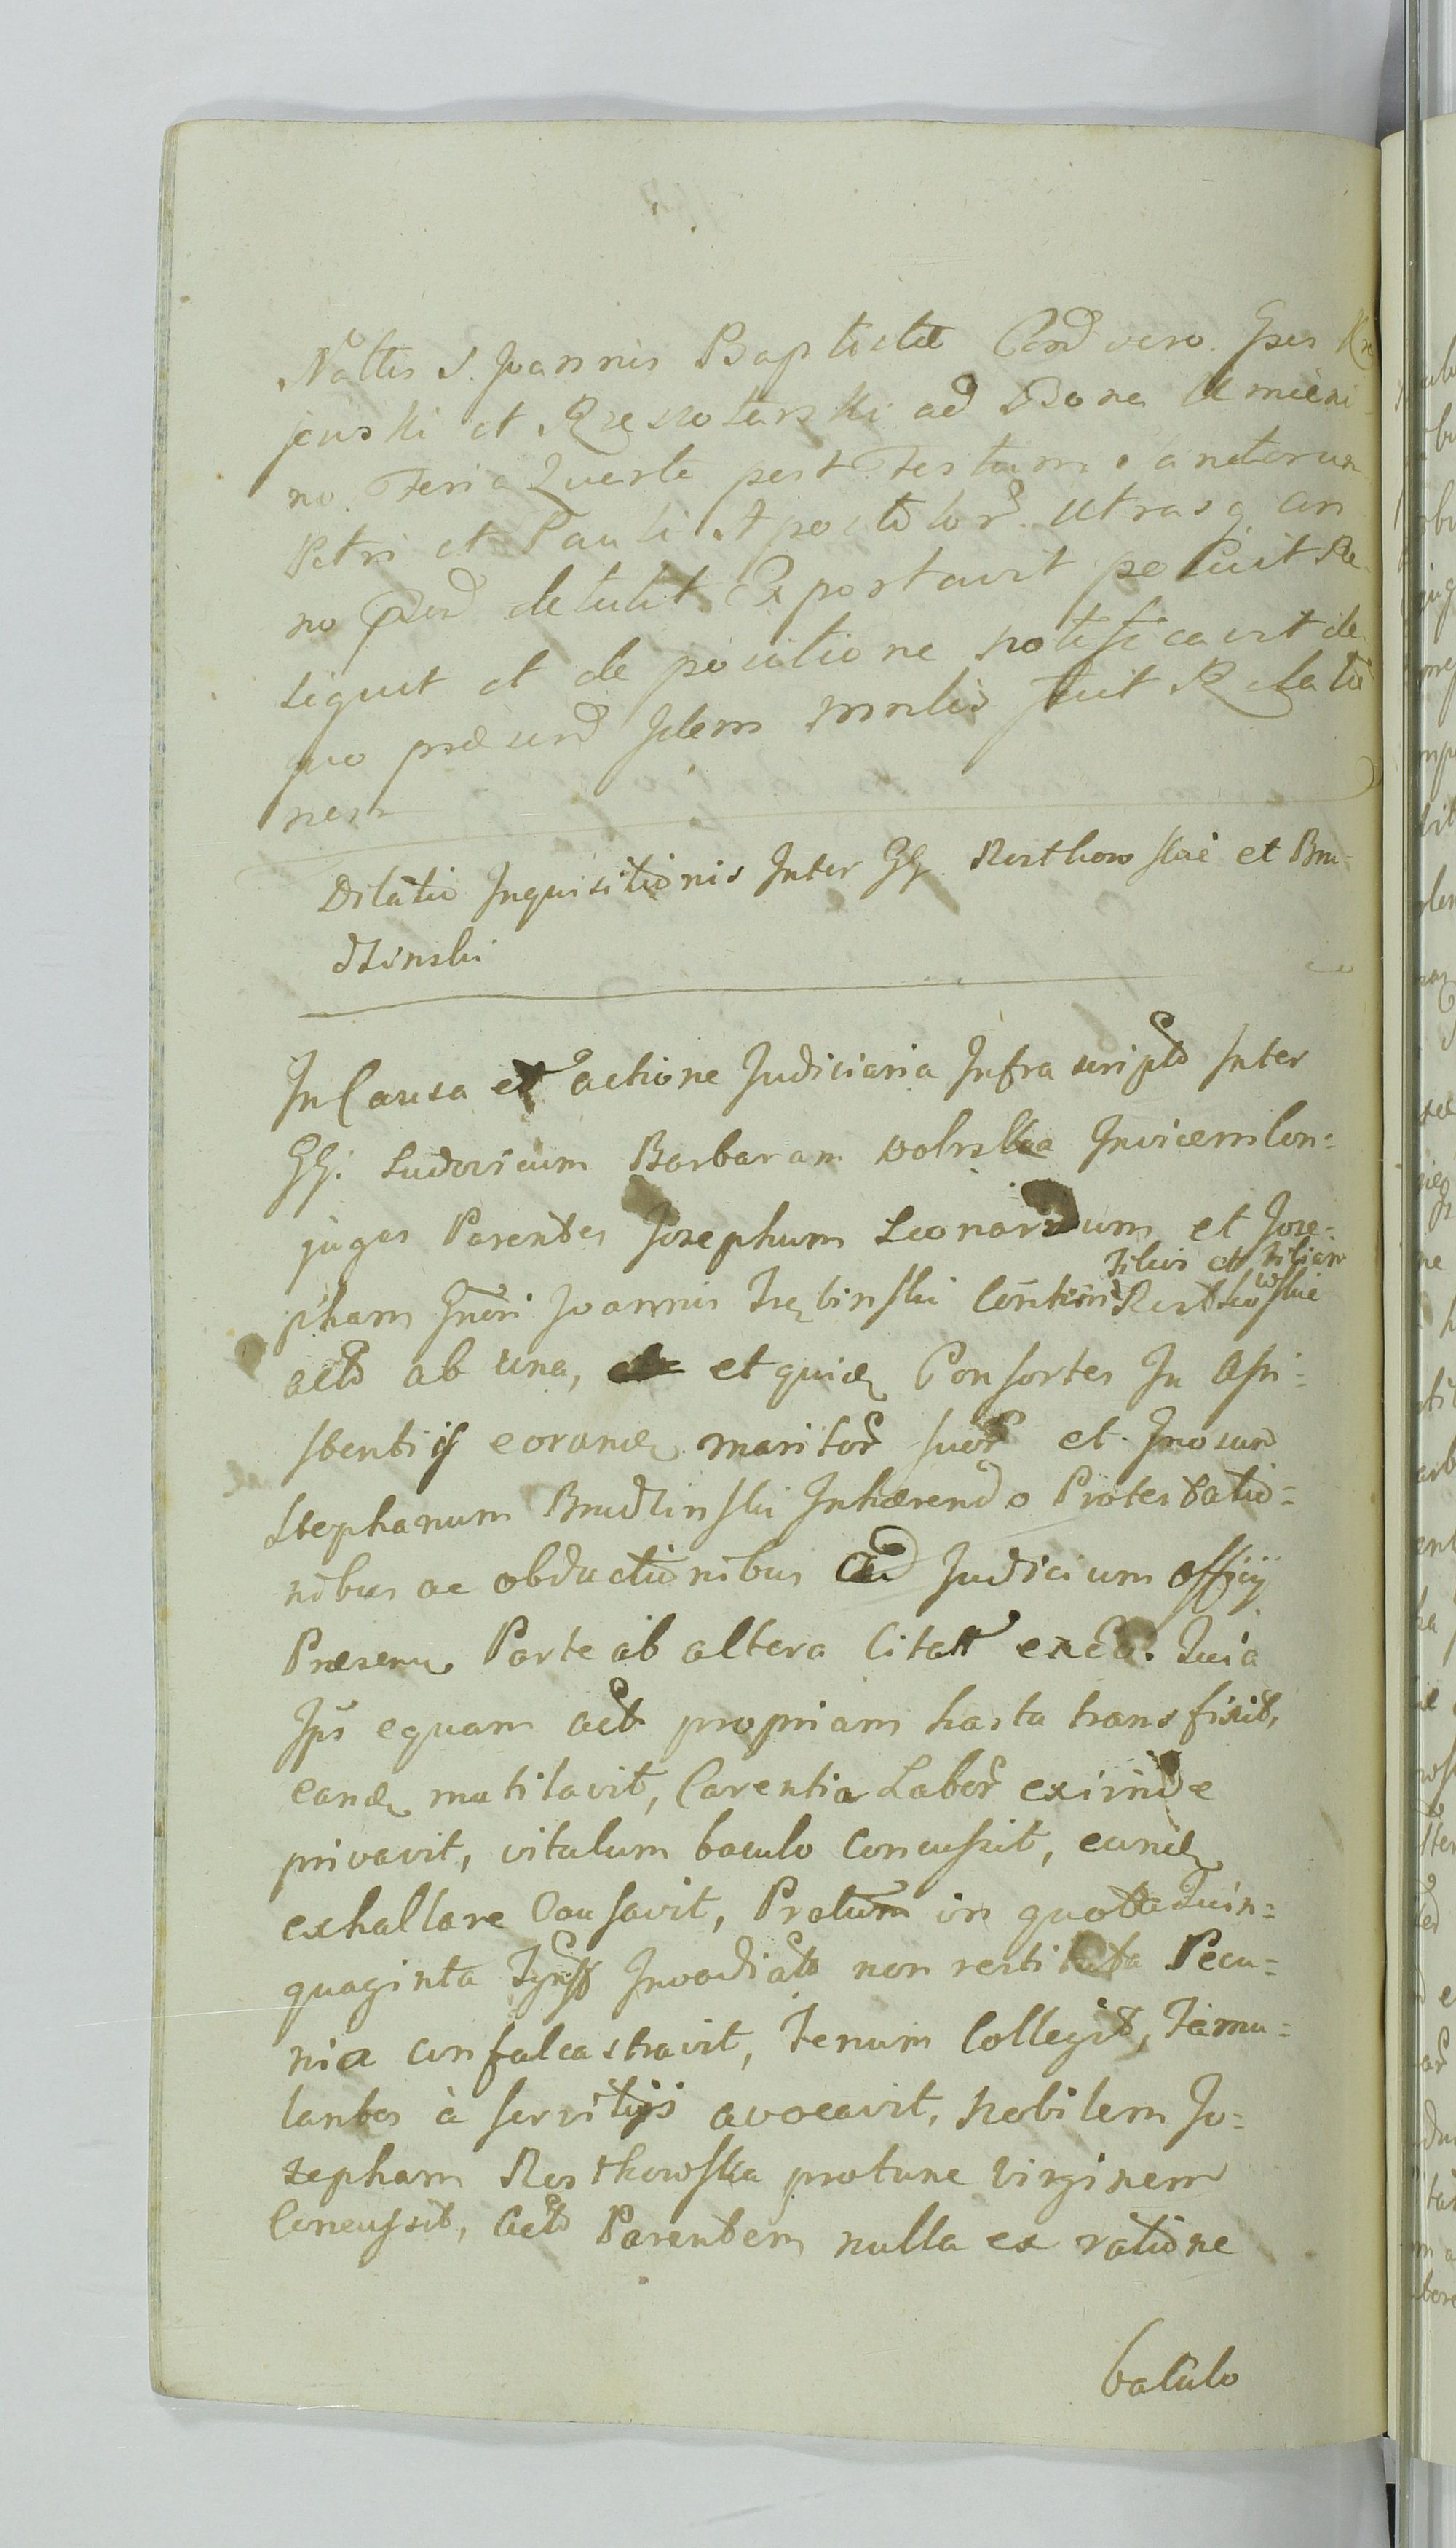 Nattis S. Joannis Baptistæ Eod vero. Gsos Kra
jewski et Rzeszotarski ad Bona Umieni
no. Feria Quarta post Festum Sanctorum
Petri et Pauli Apostolor. utrasq an
no Eod detulit Exportavit posuit Re
liquit et de positione notificavit de
quo præsend Idem Mnlis fecit Relatio
nem
Dilatio Inquisitionis Inter GG. Rostkowskie et Bru-
dzinski
In Causa et actione Judiciaria Infrascripto Inter
GG: Ludovicum Barbaram Wolnska Invicem Con=
juges Parentes Josephum Leonardum et Jose-
pham Gneri Joannis Trębinski Contim Rostkowskie
Filios et Filiam
acto ab una, et quidem Consortes In Assi=
stentijs eorundem maritor suor et Gnosum
Stephanum Brudzinski Inhærendo Protestatio=
nibus ac obductionibus ad Judicium Officij
Præsens Parte ab altera Citatt ex eo: Quia
Ips equam act propriam hasta transfixit,
eandem mutilavit, Carentia Labor exinde
privavit, vitulum baculo Concussit, eundem
exhallare Causavit, Pratum in quota Quin=
quaginta Tynff Invadiatt non restituta Pecu=
nia confalcastravit, Fenum Collegit, Famu=
lantes à servitijs avocavit, Nobilem Jo=
sepham Rostkowska protunc Virginem
Concussit, Acto Parentem nulla ex ratione
baculo